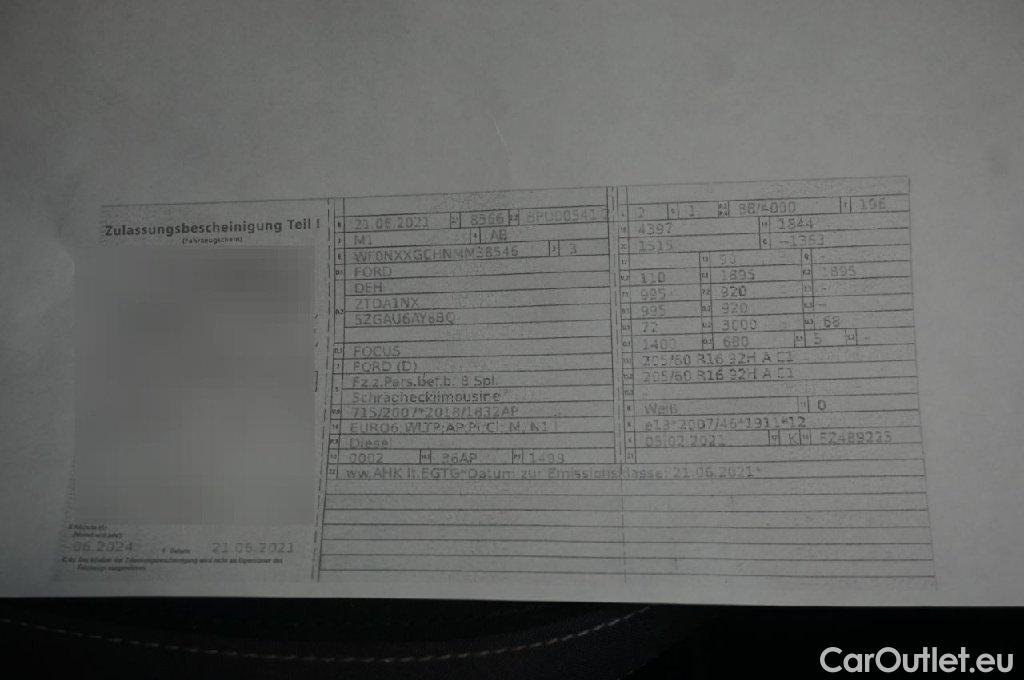 Zulassungsbescheinigung Teil I
(Fahrzeugschein)
21.06.2021 8566
M1 AB
WF0NXXGCHNMM38546 3
FORD
DEH
ZTDA1NX
5ZGAU6AY8BQ
FOCUS
FORD (D)
Fz.z.Pers.bef.b. 8 Spl.
Schräghecklimousine
715/2007*2018/1832AP
EURO6
Diesel
0002 36AP 1499
2 1 88/4000 196
4397 1844
1515 -1363
90 -
110 1895 1895
995 920 -
995 920 -
72 3000 68
1400 680 5 -
205/60 R16 92H A E1
205/60 R16 92H A E1
-
Weiß 0
e13*2007/46*1911*12
05.02.2021 K
ww.AHK lt.EGTG*Datum zur Emissionsklasse: 21.06.2021*
06.2024 21.06.2021
CarOutlet.eu